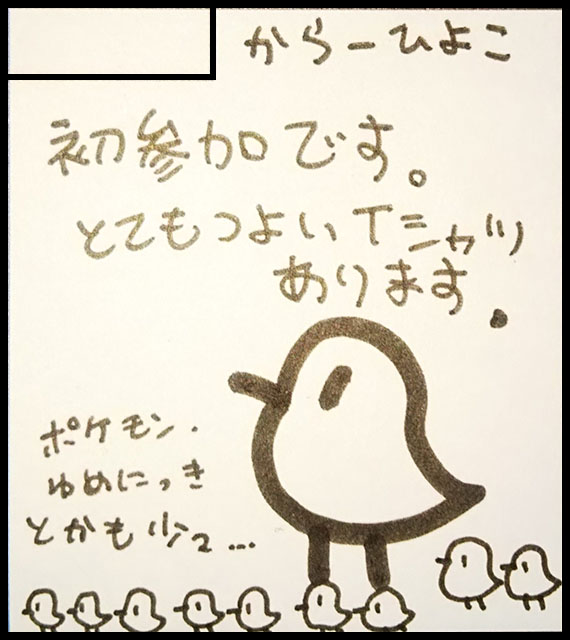 からーひよこ
初参加です。
とてもつよいTシャツ
あります.
ポケモン.
ゆめにっき
とかも少々...